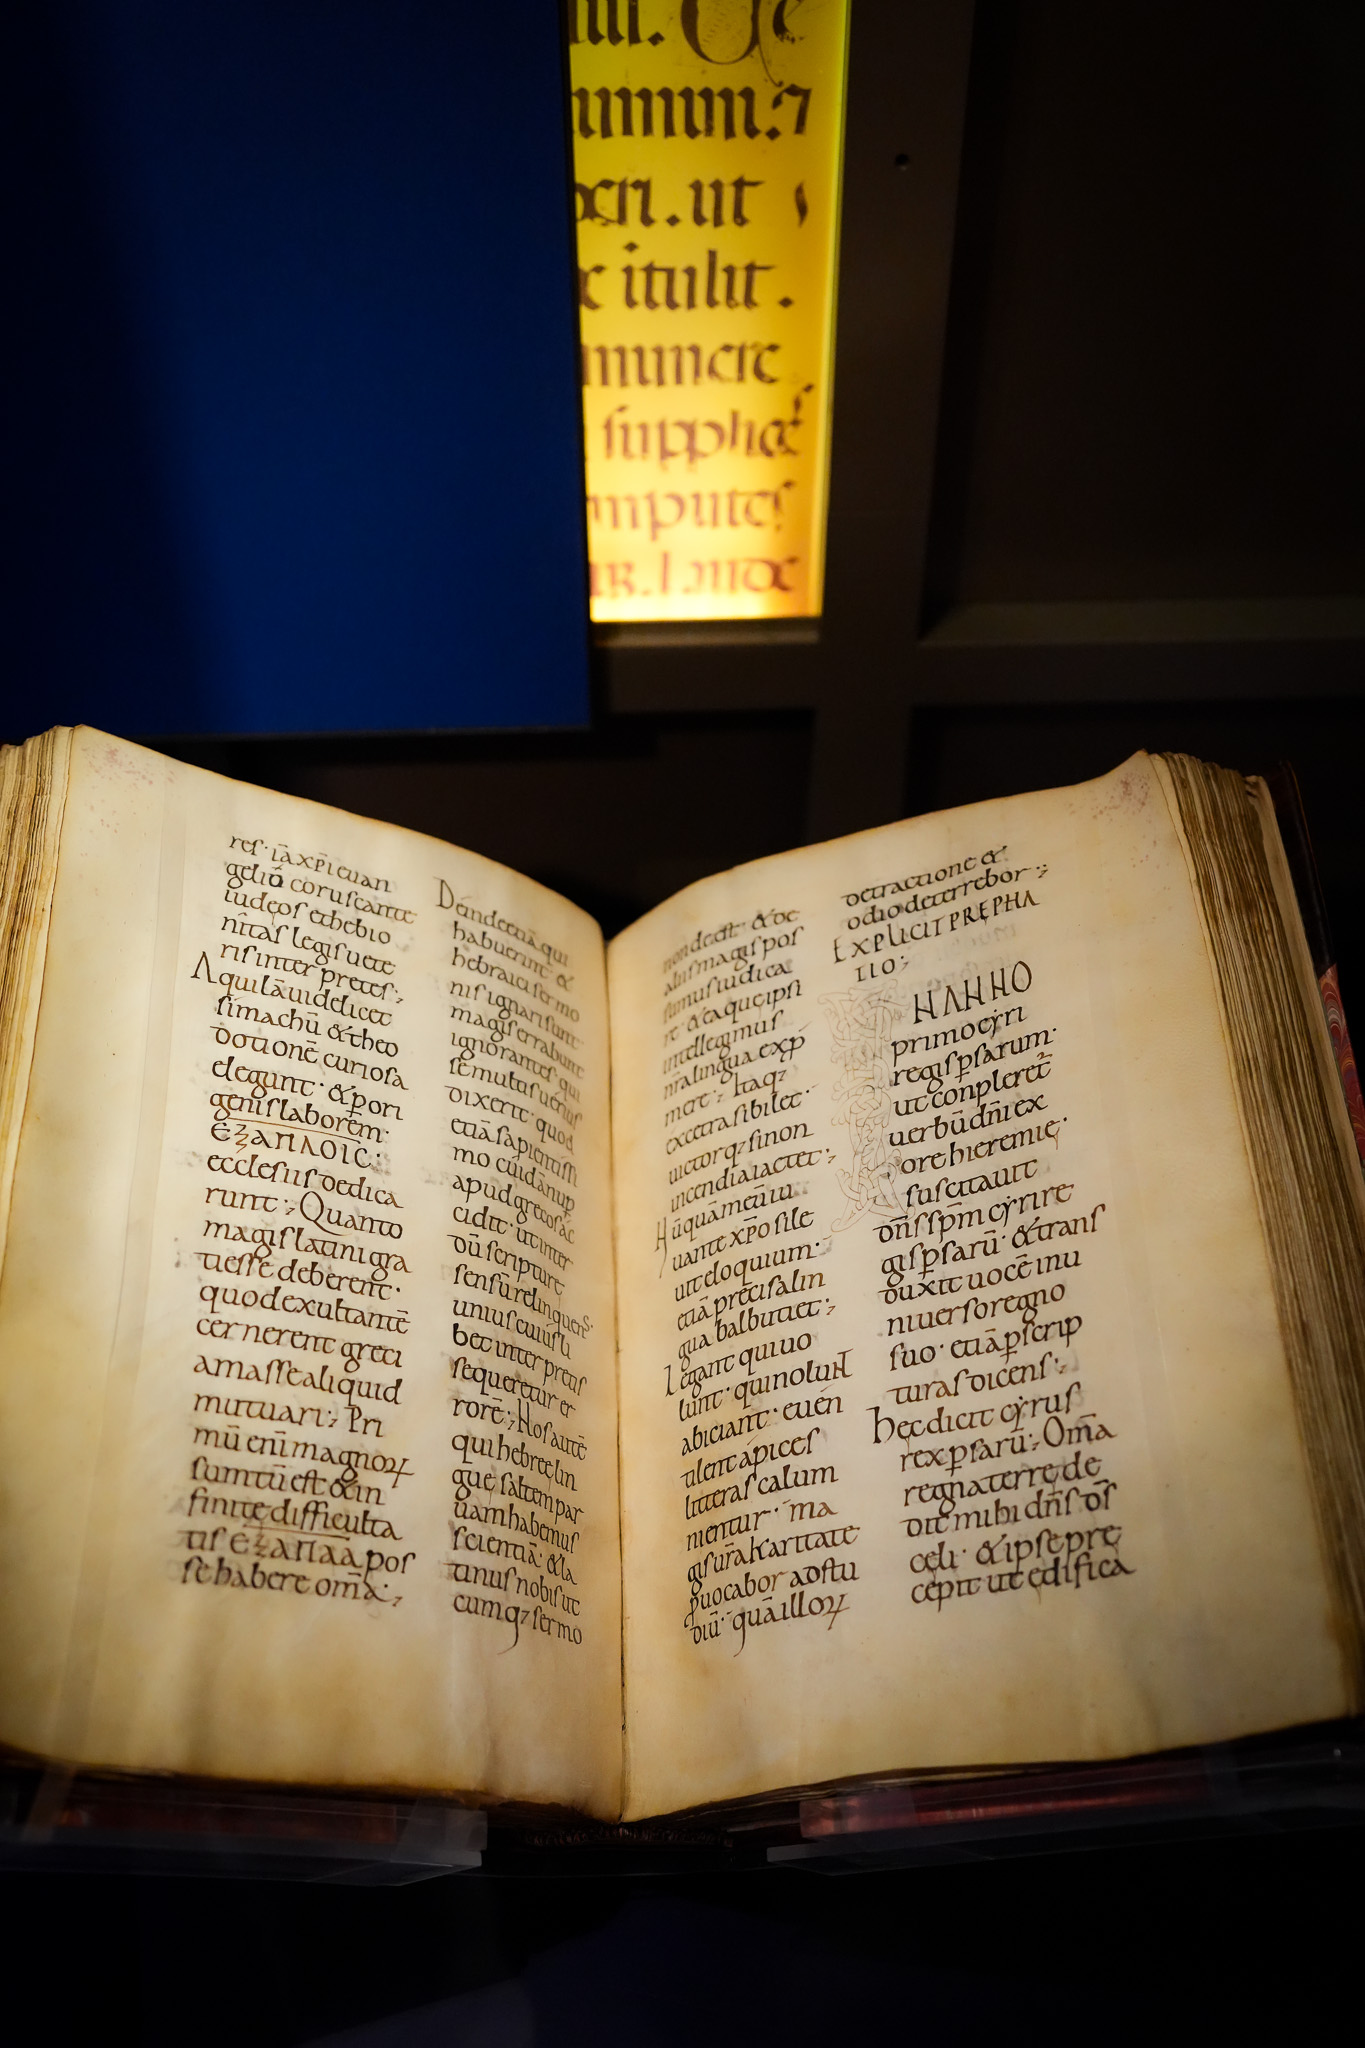 iiii. Ue
mmm.7
acri. ut
itulit.
munere
supplicet
mputes
res· iā xp̄i euan
geliū coruscante
iudeos et hebio
nitas legis uete
ris inter pretes·;
Aquilā uidelicet
simachū & theo
dotionē curiosa
elegunt· & pori
genis laborem·
ΕΞΑΠΛΟΙC:
ecclesiis dedica
runt·; Quanto
magis latini gra
ti esse deberent·
quod exultantē
cernerent greci
a masse aliquid
mutuari·; Pri
mū enī magnoꝝ
sumtū est & in
finite difficulta
tis ΕΞΑΠΛΑ pos
se habere om̄a·;
Deinde etiā qui
habuerint &
hebraici sermo
nis ignari sunt
magis errabunt
ignorantes· qui
se multis uerius
dixerit· quod
etiā sapientissi
mo cuidā nup̄
apud grecos ac
cidit· ut inter
dū scripture
sensū relinquens
unius cuiusli
bet inter pretis
sequeretur er
rorē·; Nos autē
qui hebree lin
gue saltem par
uam habemus
scientiā· & la
tinus nobis ut
cumq; sermo
non deest· & de
aliis magis pos
sumus iudica
re· & ea que ipsi
intellegimus
nr̄a lingua exp̄
mere·; Itaq;
excetra sibilet·
uictorq; sinon
incendia iactet·;
Nūquā meū iu
uante xp̄o sile
uit eloquium·
etiā precisa lin
gua balbutiet·;
Legant qui uo
lunt· qui nolunt
abiciant· euen
tilent apices
litteras calum
nientur· ma
gis ur̄a karitate
p̄uocabor ad stu
diū· quā illoꝝ
detractione &
odio deterrebor·;
EXPLICIT PREPHA
TIO·;
IN ANNO
primo cyri
regis p̄sarum·
ut conpleret̄
uerbū dn̄i ex
ore hieremie·
suscitauit
dn̄s sp̄m cyri re
gis p̄sarū· & trans
duxit uocē in u
niuerso regno
suo· etiā p̄ scrip
turas dicens·;
Hec dicit cyrus
rex p̄sarū·; Om̄a
regna terre de
dit mihi dn̄s ds̄
celi· & ipse pre
cepit ut edifica